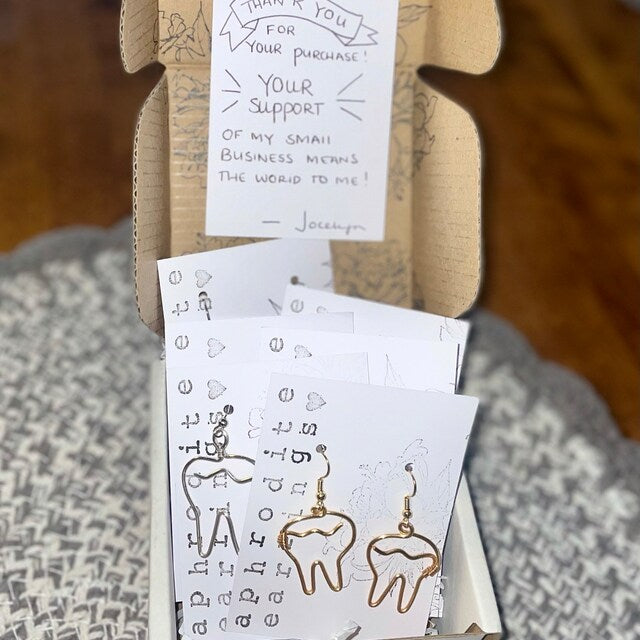 THANK YOU
FOR
YOUR PURCHASE!
YOUR
SUPPORT
OF MY SMALL
BUSINESS MEANS
THE WORLD TO ME!
— Jocelyn
aphrodite
earrings
aphrodite
earrings